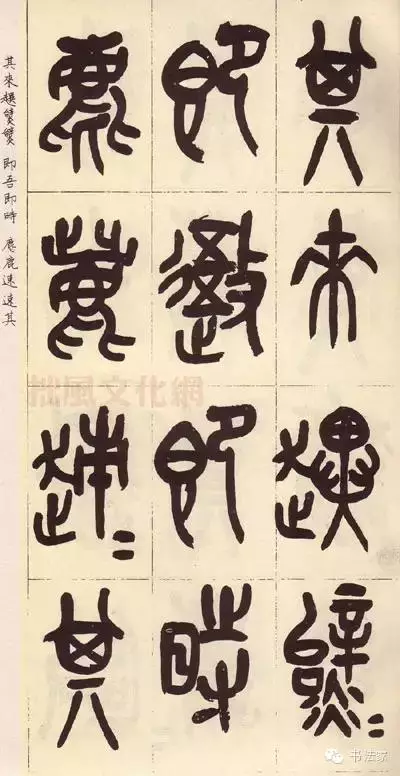 其來趩
即即時
麀鹿速〓其
其來趩 即吾即時 麀鹿速速其
拙風文化網
书法家